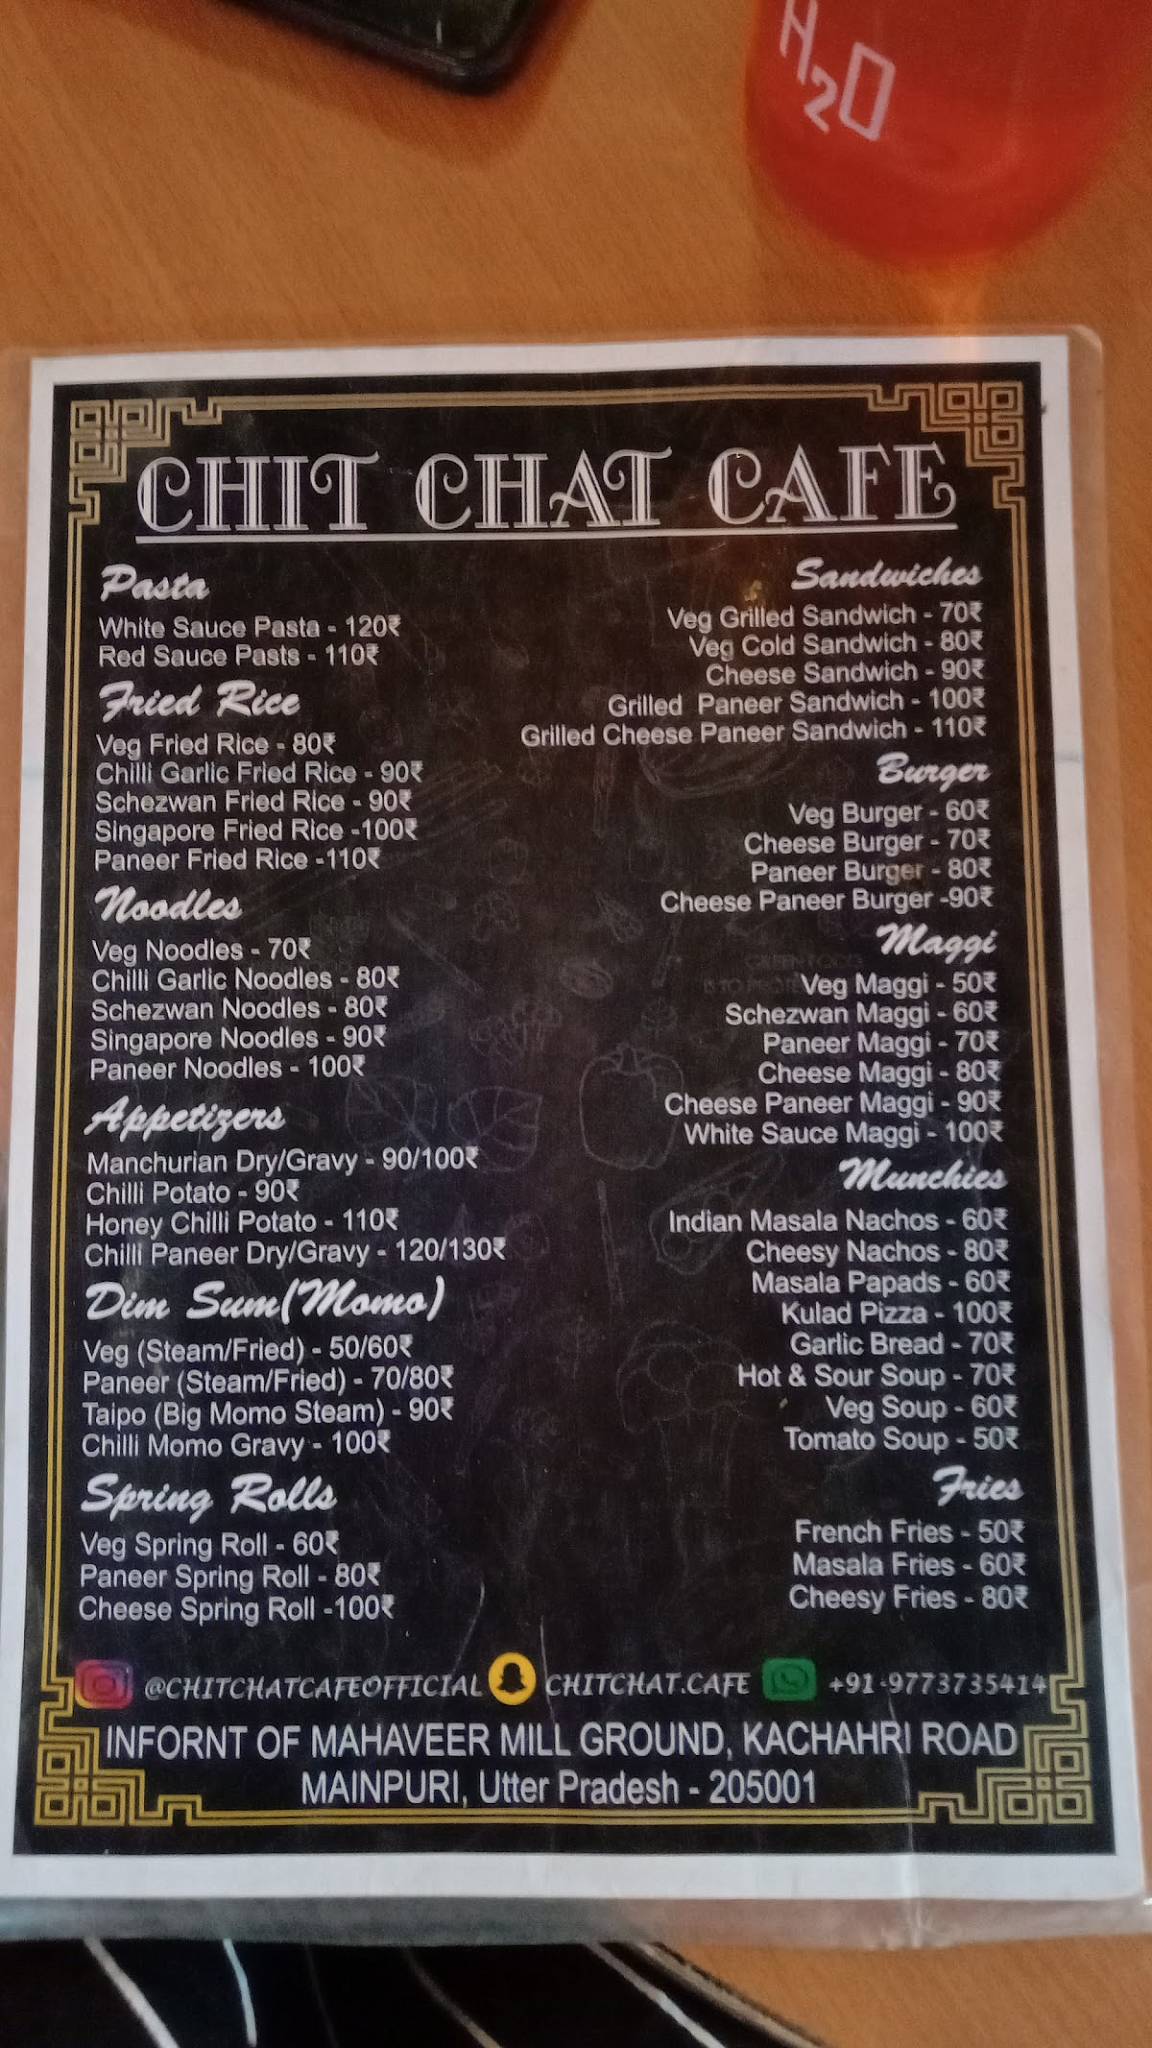 H2O
CHIT CHAT CAFE
Pasta
White Sauce Pasta - 120₹
Red Sauce Pasts - 110₹
Fried Rice
Veg Fried Rice - 80₹
Chilli Garlic Fried Rice - 90₹
Schezwan Fried Rice - 90₹
Singapore Fried Rice -100₹
Paneer Fried Rice -110₹
Noodles
Veg Noodles - 70₹
Chilli Garlic Noodles - 80₹
Schezwan Noodles - 80₹
Singapore Noodles - 90₹
Paneer Noodles - 100₹
Appetizers
Manchurian Dry/Gravy - 90/100₹
Chilli Potato - 90₹
Honey Chilli Potato - 110₹
Chilli Paneer Dry/Gravy - 120/130₹
Dim Sum(Momo)
Veg (Steam/Fried) - 50/60₹
Paneer (Steam/Fried) - 70/80₹
Taipo (Big Momo Steam) - 90₹
Chilli Momo Gravy - 100₹
Spring Rolls
Veg Spring Roll - 60₹
Paneer Spring Roll - 80₹
Cheese Spring Roll -100₹
Sandwiches
Veg Grilled Sandwich - 70₹
Veg Cold Sandwich - 80₹
Cheese Sandwich - 90₹
Grilled Paneer Sandwich - 100₹
Grilled Cheese Paneer Sandwich - 110₹
Burger
Veg Burger - 60₹
Cheese Burger - 70₹
Paneer Burger - 80₹
Cheese Paneer Burger -90₹
Maggi
Veg Maggi - 50₹
Schezwan Maggi - 60₹
Paneer Maggi - 70₹
Cheese Maggi - 80₹
Cheese Paneer Maggi - 90₹
White Sauce Maggi - 100₹
Munchies
Indian Masala Nachos - 60₹
Cheesy Nachos - 80₹
Masala Papads - 60₹
Kulad Pizza - 100₹
Garlic Bread - 70₹
Hot & Sour Soup - 70₹
Veg Soup - 60₹
Tomato Soup - 50₹
Fries
French Fries - 50₹
Masala Fries - 60₹
Cheesy Fries - 80₹
@CHITCHATCAFEOFFICIAL CHITCHAT.CAFE +91-9773735414
INFORNT OF MAHAVEER MILL GROUND, KACHAHRI ROAD
MAINPURI, Utter Pradesh - 205001